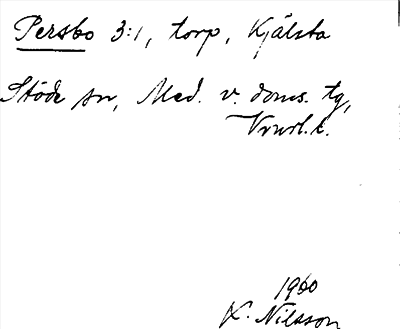 Persbo 3:1, torp, Kjälsta
Stöde sn, Med. v. doms. tg,
Vnrl. l.
1960
K. Nilsson